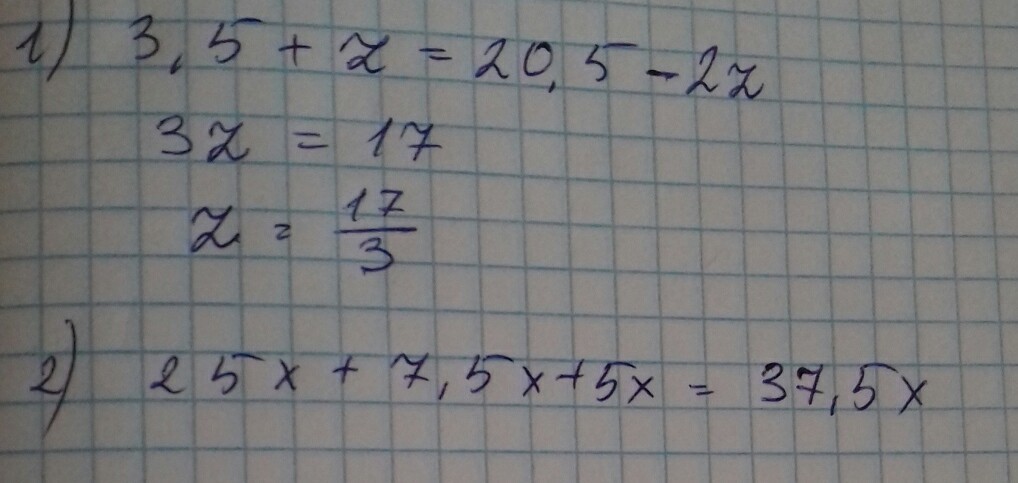 1) 3,5 + z = 20,5 - 2z
3z = 17
z = 17/3
2) 25x + 7,5x + 5x = 37,5x